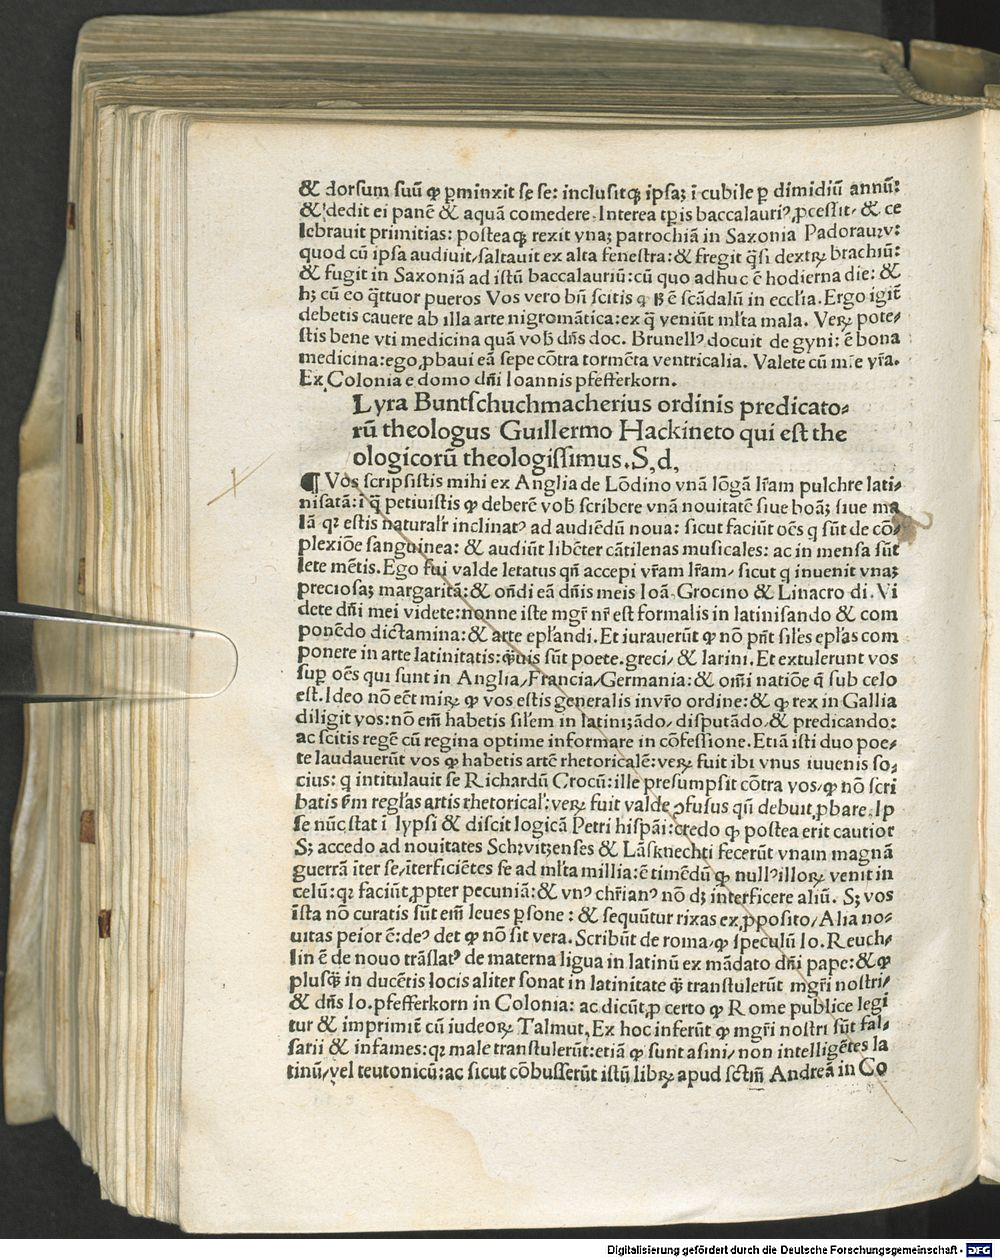 & dorsum suū ꝙ ꝑminxit se se: inclusitqꝫ ipsaꝫ ī cubile ꝑ dimidiū annū:
& dedit ei panē & aquā comedere. Interea tꝑis baccalauriꝰ ꝓcessit, & ce
lebrauit primitias: posteaqꝫ rexit vnaꝫ parrochiā in Saxonia Padorauꝛv:
quod cū ipsa audiuit, saltauit ex alta fenestra: & fregit q̄si dextrꝝ brachiū:
& fugit in Saxoniā ad istū baccalauriū: cū quo adhuc ē hodierna die: &
hꝫ cū eo q̄ttuor pueros Vos vero bn̄ scitis q ē scādalū in ecclīa. Ergo igit̄
debetis cauere ab illa arte nigromātica: ex q̄ veniūt mľta mala. Veꝝ pote⸗
stis bene vti medicina quā vob̄ dn̄s doc. Brunellꝰ docuit de gyni: ē bona
medicina: ego ꝓbaui eā sepe cōtra tormēta ventricalia. Valete cū mr̄e vr̄a.
Ex Colonia e domo dn̄i Ioannis pfefferkorn.
Lyra Buntschuchmacherius ordinis predicato⸗
rū theologus Guillermo Hackineto qui est the
ologicorū theologissimus. S, d,
¶ Vos scripsistis mihi ex Anglia de Lōdino vnā lōgā lr̄am pulchre lati⸗
nisatā: ī q̄ petiuistis ꝙ deberē vob̄ scribere vnā nouitatē siue boāꝫ siue ma
lā qꝛ estis naturalr̄ inclinatꝰ ad audiēdū noua: sicut faciūt oēs q sūt de cō⸗
plexiōe sanguinea: & audiūt libēter cātilenas musicales: ac in mensa sūt
lete mētis. Ego fui valde letatus qn̄ accepi vr̄am lr̄am, sicut q inuenit vnaꝫ
preciosaꝫ margaritā: & on̄di eā dn̄is meis Ioā. Grocino & Linacro di. Vi
dete dn̄i mei videte: nonne iste mgr̄ nr̄ est formalis in latinisando & com
ponēdo dictamina: & arte epľandi. Et iurauerūt ꝙ nō pn̄t siľes epľas com
ponere in arte latinitatis: q̄uis sūt poete. greci, & latini. Et extulerunt vos
suꝑ oēs qui sunt in Anglia, Francia, Germania: & om̄i natiōe q̄ sub celo
est. Ideo nō eēt mirꝝ ꝙ vos estis generalis in vr̄o ordine: & ꝙ rex in Gallia
diligit vos: nō em̄ habetis siľem in latiniꝫādo, disputādo, & predicando:
ac scitis regē cū regina optime informare in cōfessione. Etiā isti duo poe⸗
te laudauerūt vos ꝙ habetis artē rhetoricalē: veꝝ fuit ibi vnus iuuenis so⸗
cius: q intitulauit se Richardū Crocū: ille presumpsit cōtra vos, ꝙ nō scri
batis ẜm regľas artis rhetorical: veꝝ fuit valde ꝯfusus qn̄ debuit ꝓbare. Ip
se nūc stat ī lypsi & discit logicā Petri hispāi: credo ꝙ postea erit cautior
Sꝫ accedo ad nouitates Schꝛvitꝫenses & Lāsknechti fecerūt vnam magnā
guerrā īter se, īterficiētes se ad mľta millia: ē timēdū ꝙ nullꝰ illoꝝ venit in
celū: qꝛ faciūt ꝓpter pecuniā: & vnꝰ chr̄ianꝰ nō dꝫ interficere aliū. Sꝫ vos
īsta nō curatis sūt em̄ leues ꝑsone: & sequūtur rixas ex ꝓposito, Alia no⸗
uitas peior ē: deꝰ det ꝙ nō sit vera. Scribūt de roma, ꝙ speculū Io. Reuch⸗
lin ē de nouo trāslatꝰ de materna ligua in latinū ex mādato dn̄i pape: & ꝙ
plusq̄ in ducētis locis aliter sonat in latinitate q̄ transtulerūt mgr̄i nostri,
& dn̄s Io. pfefferkorn in Colonia: ac dicūt ꝓ certo ꝙ Rome publice legi
tur & imprimit̄ cū iudeoꝝ Talmut, Ex hoc inferūt ꝙ mgr̄i nostri sūt fal⸗
sarii & infames: qꝛ male transtulerūt: etiā ꝙ sunt asini, non intelligētes la
tinū, vel teutonicū: ac sicut cōbusserūt istū librꝝ apud sctm̄ Andreā in Co
Digitalisierung gefördert durch die Deutsche Forschungsgemeinschaft - DFG